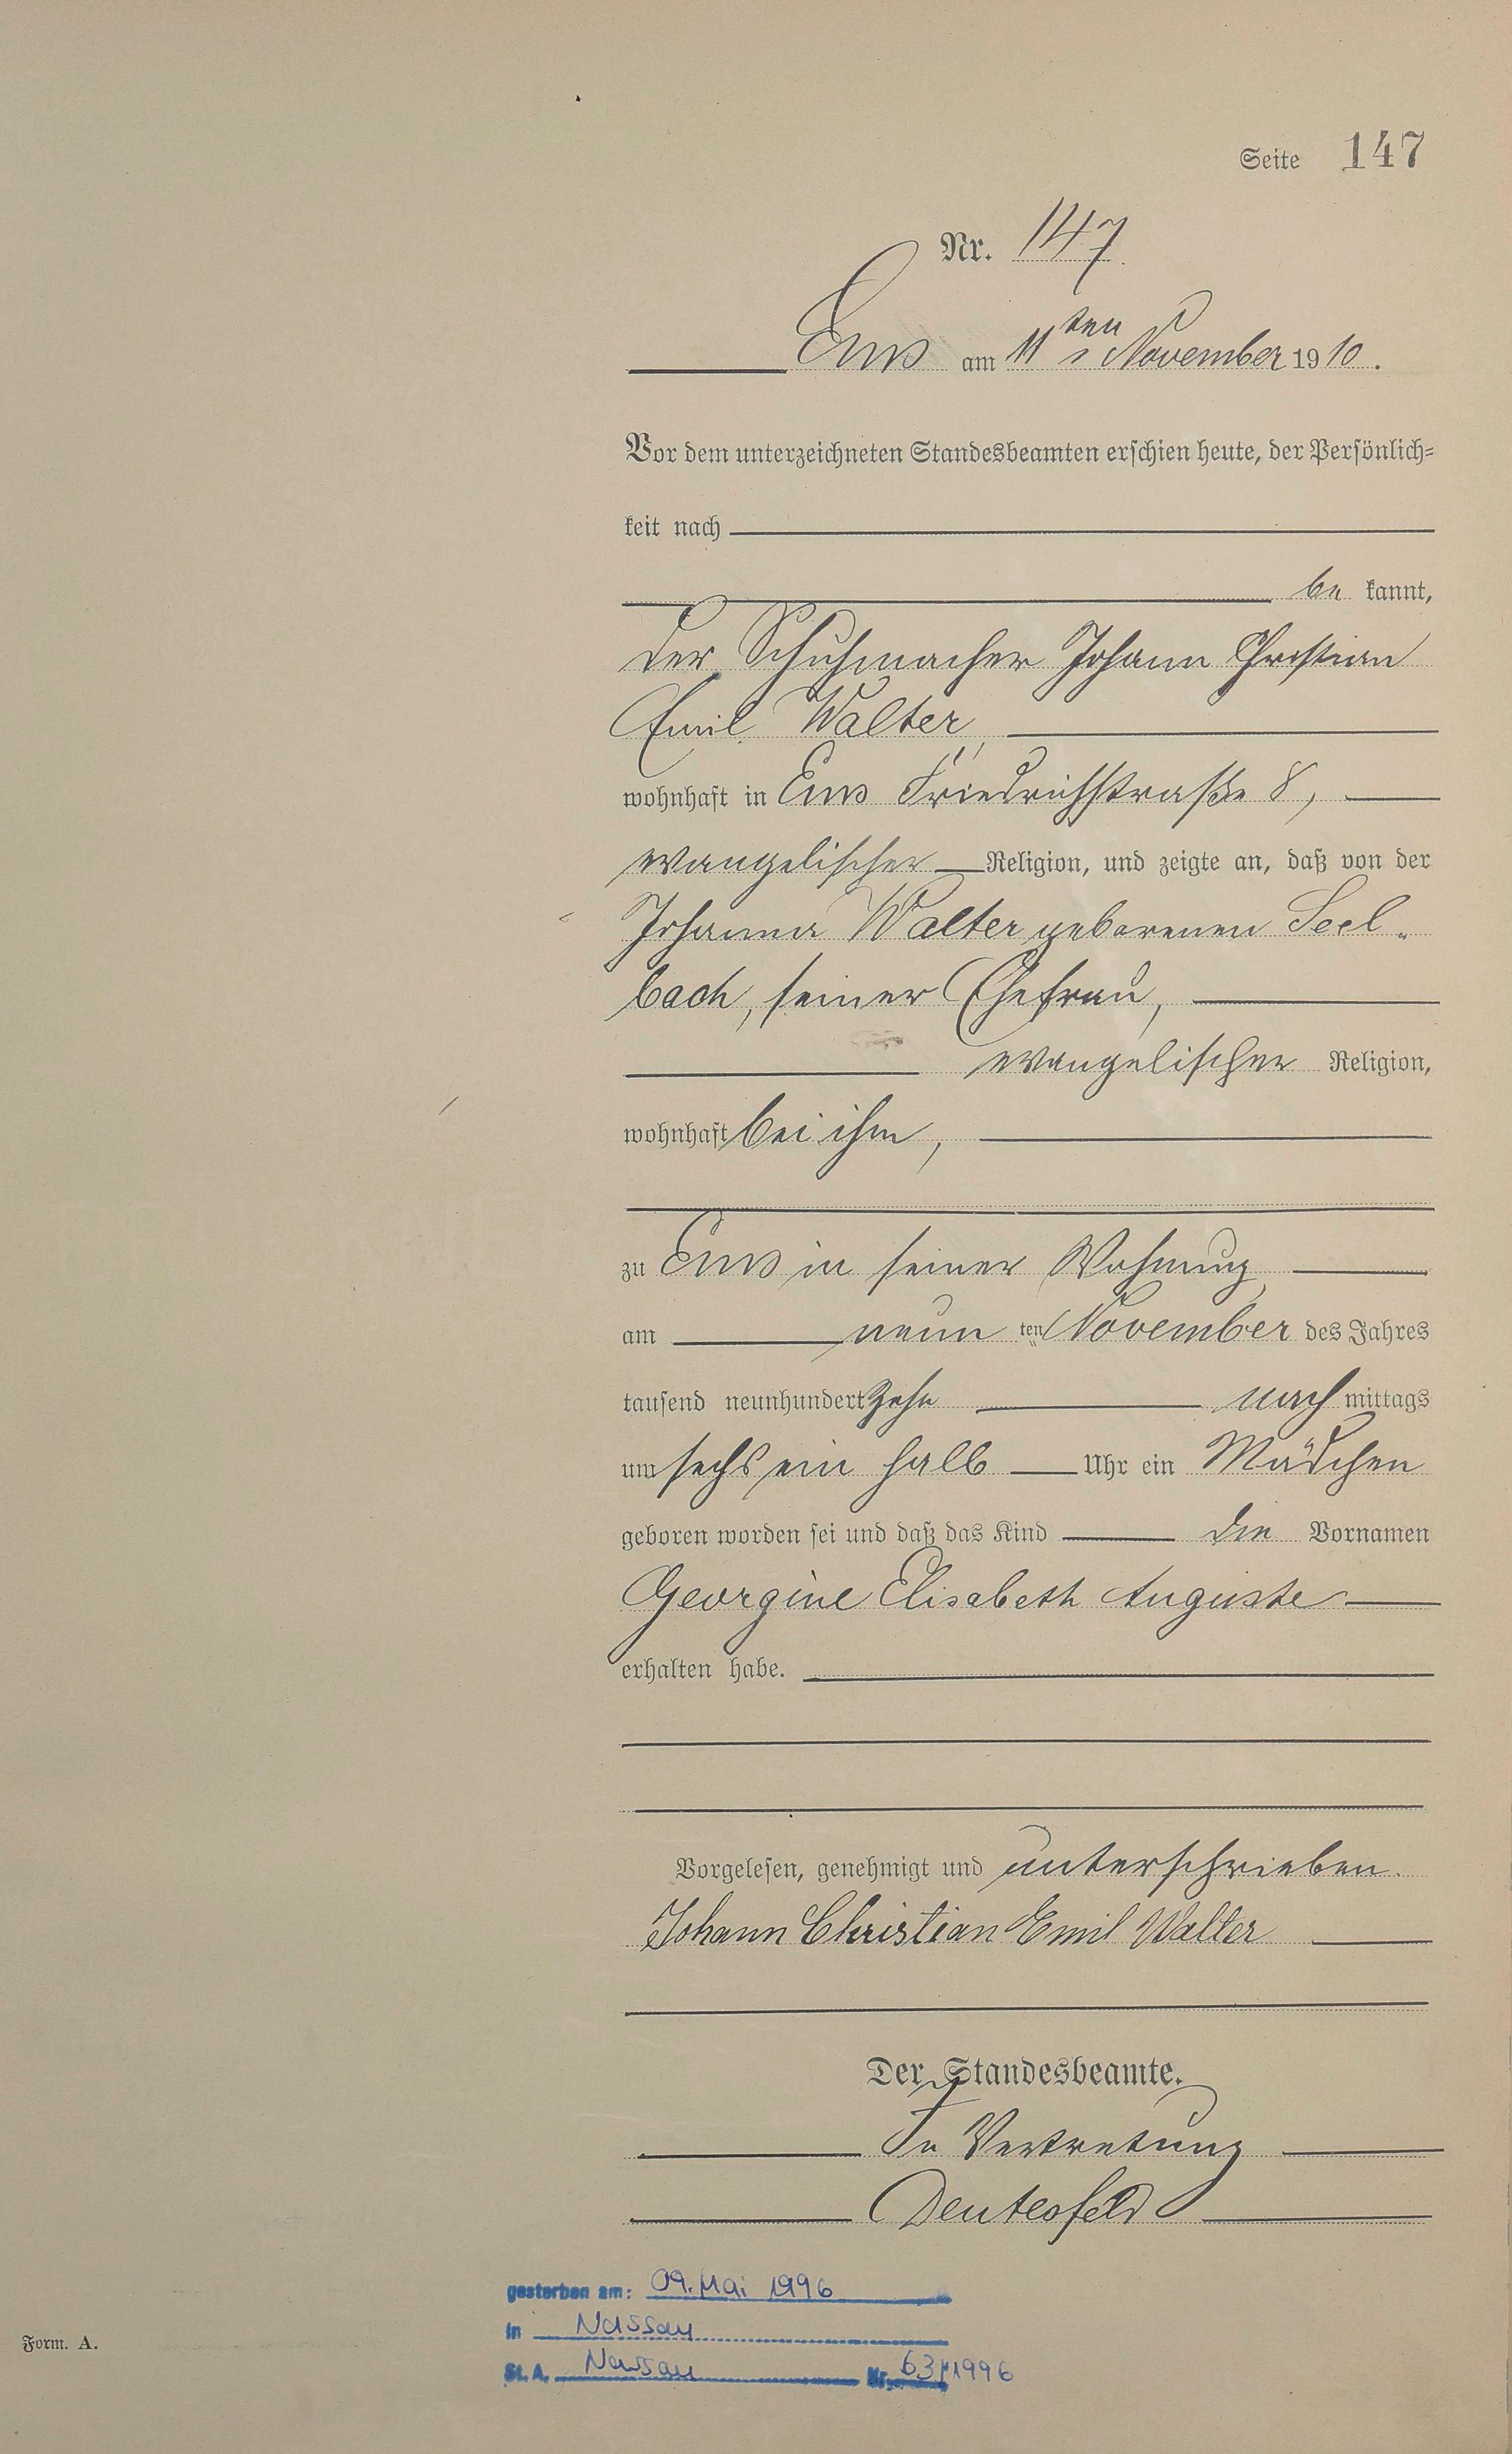 Seite 147
Nr. 147.
Ems am 11ten November 1910.
Vor dem unterzeichneten Standesbeamten erschien heute, der Persönlich=
keit nach
be kannt,
der Schuhmacher Johann Christian
Emil Walter,
wohnhaft in Ems Friedrichstraße 8,
evangelischer Religion, und zeigte an, daß von der
Johanna Walter geborenen Seel-
bach, seiner Ehefrau,
evangelischer Religion,
wohnhaft bei ihm,
zu Ems in seiner Wohnung,
am neun ten November des Jahres
tausend neunhundert zehn nach mittags
um sechs ein halb Uhr ein Mädchen
geboren worden sei und daß das Kind die Vornamen
Georgine Elisabeth Auguste
erhalten habe.
Vorgelesen, genehmigt und unterschrieben.
Johann Christian Emil Walter
Der Standesbeamte.
In Vertretung
gestorben am: 09. Mai 1996
in Nassau
St. A. Nassau Nr. 63/1996
Form. A.